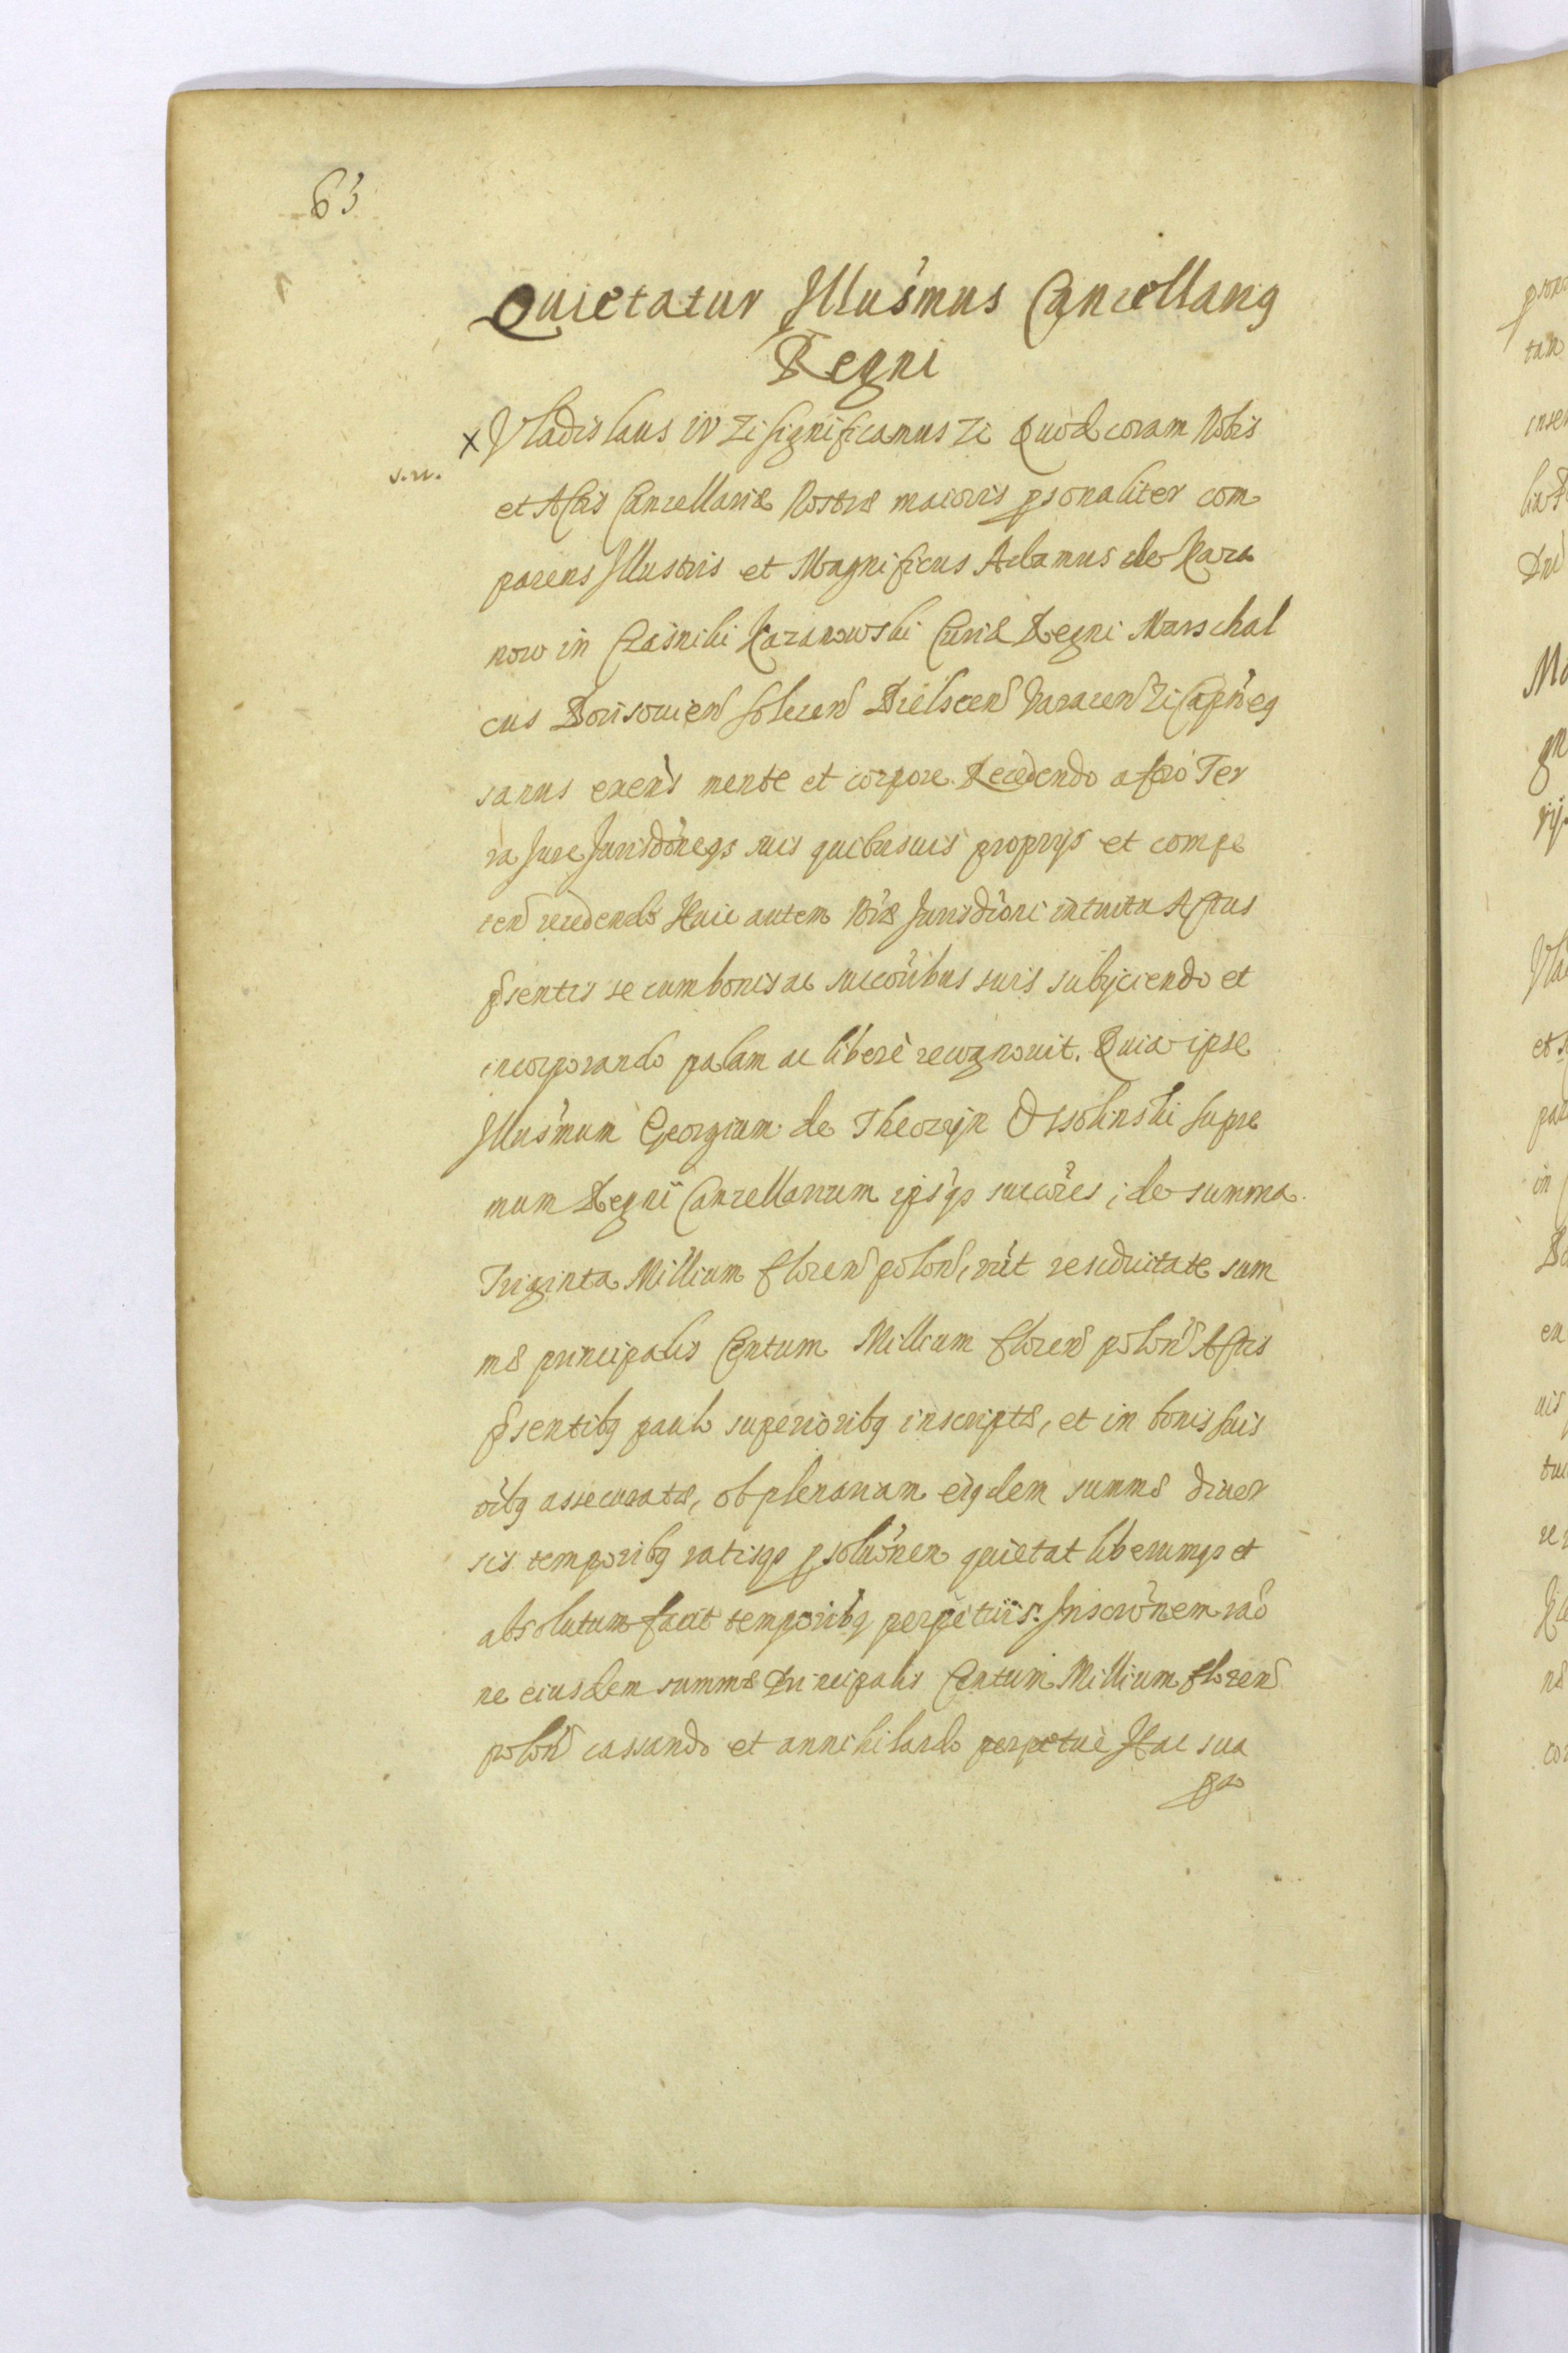 63
Quietatur Illu'smus Cancellariq
Regni
x Vladislaus IV Zc significamus Zc Quod coram Nobis
s. n.
et Actis Cancellariæ Nostræ maioris psonaliter com
parens Illustris et Magnificus Adamus de Kaza
now in Cza'sniki Kazanowski Curiæ Regni Marschal
cus Borisovien Solecen Bielscen Zc Capn'eq
sanus exen's mente et corpore Recedendo a foro Ter
ra Jure Jurisdo'neqs suis quibusuis proprijs et compe
ten recedendo Huic autem No'ræ Jurisdi'oni intuitu Actus
psentis se cum bonis ac succo'ribus suis subijciendo et
incorporando palam ac libere recognouit. Quia ipse
Illu'smum Georgium de Theczyn Ossolinski Supre
mum Regni Cancellarium ips'qs succo'res, de summa
Triginta Millium floren polon, vi't residuitate sum
mæ principalis Centum Millium floren polon Actis
psentibq paulo superioribq inscriptæ, et in bonis suis
o'ibq assecuratæ, ob plenariam eiqdem summæ diuer
sis temporibq ratisqs psolu'onem quietat liberumqs et
absolutum facit temporibq perpetuis. Inscrip'onem ra'o
ne eiusdem summæ Principalis Centum Millium floren
polon cassando et annihilando perpetue Hac sua